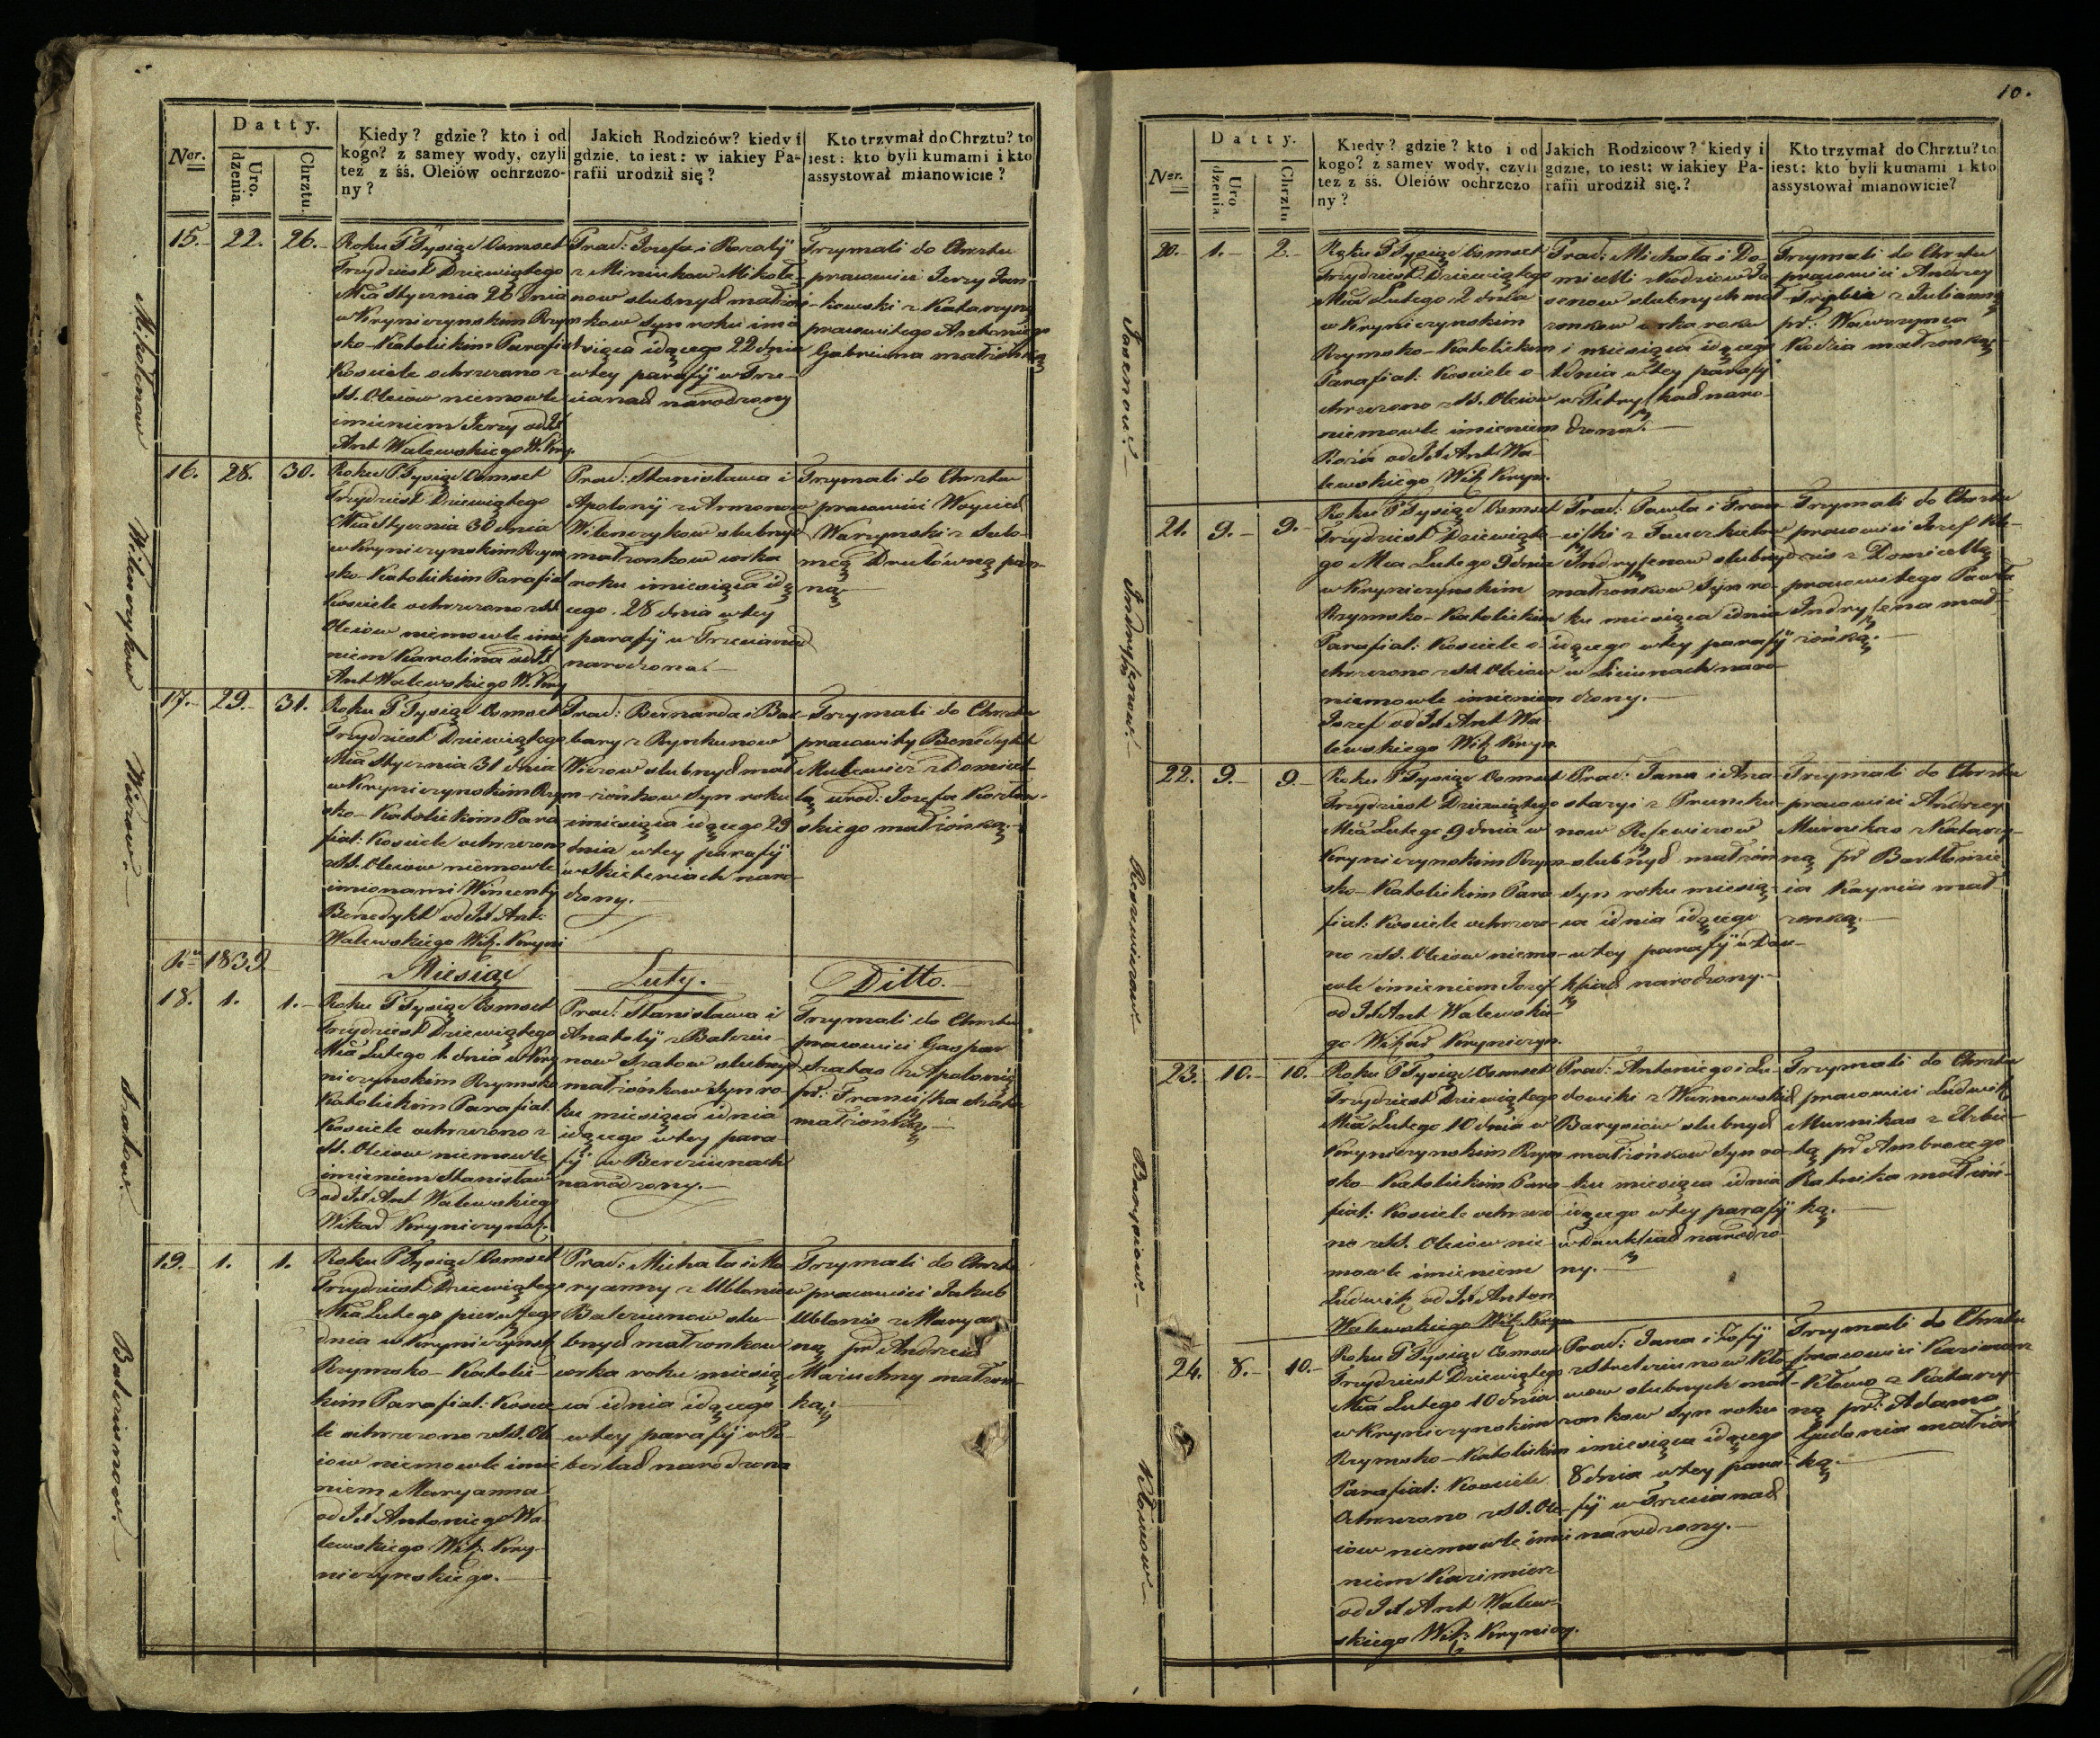 Ner.
Datty.
Uro.
dzenia.
Chrztu.
Kiedy? gdzie? kto i od
kogo? z samey wody, czyli
też z śś. Oleiów ochrzczo-
ny?
Jakich Rodziców? kiedy i
gdzie, to iest: w iakiey Pa-
rafii urodził się?
Kto trzymał do Chrztu? to
iest: kto byli kumami i kto
assystował mianowicie?
Mikołenow
15. 22. 26.
Roku P Tysiąc Osmset
Trzydziest Dziewiątego
Mca Stycznia 26 dnia
w Kryniczynskim Rzym
sko-Katolickim Parafial
Kosciele ochrzczono z
SS. Oleiow niemowle
imieniem Jerzy od Jd
Ant Walewskiego W. Kryn.
Prac: Jozefa i Rozalÿ
z Miniukow Mikołe-
now slubnych małżoń-
kow syn roku i mie-
siąca idącego 22 dnia
w tey parafÿ w Trze-
cianach narodzony
Trzymali do Chrztu
pracowici Jerzy Jan-
kowski z Katarzyną
pracowitego Antoniego
małżonką
Witenczykow
16. 28. 30.
Roku P Tysiąc Osmset
Trzydziest Dziewiątego
Mca Stycznia 30 dnia
w Kryniczynskim Rzym
sko-Katolickim Parafial
Kosciele ochrzczono z SS
Oleiow niemowle imie
niem Karolina od Jd
Ant Walewskiego W. Kryn
Prac: Stanisława i
Apolonÿ z Armonow
Witenczykow slubnych
małżonkow corka
roku i miesiąca idą
cego 28 dnia w tey
parafÿ w Trzecianach
narodzona.
Trzymali do Chrztu
pracowici Woyciech
Warzynski z Salo-
meą Drutówną pan-
ną
17. 29. 31.
Roku P Tysiąc Osmset
Trzydziest Dziewiątego
Mca Stycznia 31 dnia
w Kryniczynskim Rzym
sko-Katolickim Para
fial: Kosciele ochrzczono
z SS. Oleiow niemowle
imionami Wincenty
Benedykt od Jd Ant:
Walewskiego Wik. Kryni
Prac: Bernarda i Bar-
bary z Rynkunow
slubnych mał
żońkow syn roku
i miesiąca idącego 29
dnia w tey parafÿ
w Skieteriach naro-
dzony.
Trzymali do Chrztu
pracowity Benedykt
z Domicel-
lą urod: Jozefa
skiego małżonką.
Rku 1839
Miesiąc Luty. Ditto.
Szatow.
18. 1. 1.
Roku P Tysiąc Osmset
Trzydziest Dziewiątego
Mca Lutego 1 dnia w Kry
niczynskim Rzymsko
Katolickim Parafial.
Kosciele ochrzczono z
SS. Oleiow niemowle
imieniem Stanisław
od Jd Ant Walewskiego
Wikar Krynicznsk.
Prac: Stanisława i
Anatolÿ z Balciu-
now Szatow slubnych
małżońkow syn ro-
ku miesiąca i dnia
idącego w tey para-
fÿ w Berciunach
narodzony.
Trzymali do Chrztu
pracowici Gaspar
Szatas z Apolonią
pr: Franciszka
małżońką
Balciunow.
19. 1. 1.
Roku P Tysiąc Osmset
Trzydziest Dziewiątego
Mca Lutego pierwszego
dnia w Krynicznsk
Rzymsko-Katolic-
kim Parafial: Koscie
le ochrzczono z SS. Ole
iow niemowle imie
niem Maryanna
od Jd Antoniego Wa-
lewskiego Wik. Kry-
niczynskiego.
Prac: Michała i Ma
ryanny z Ublaniow
Balciunow slu-
bnych małżonkow
corka roku miesią
ca i dnia idącego
w tey parafÿ w Po-
narodzona
Trzymali do Chrztu
pracowici Jakub
Ublanis z Marya
ną pr Andrzeia
małżon-
ką:
10.
Ner.
Datty.
Uro
dzenia.
Chrztu
Kiedy? gdzie? kto i od
kogo? z samey wody, czyli
też z śś. Oleiów ochrzczo
ny?
Jakich Rodziców? kiedy i
gdzie, to iest; w iakiey Pa-
rafii urodził się.?
Kto trzymał do Chrztu? to
iest: kto byli kumami i kto
assystował mianowicie?
Jasenow.
20. 1. 2.
Roku P Tysiąc Osmset
Trzydziest Dziewiątego
Mca Lutego 2 dnia
w Krynicznskim
Rzymsko-Katolickim
Parafial: Kosciele o-
chrzczono z SS. Oleiow
niemowle imieniem
od Jd Ant Wa-
lewskiego Wik Kryn.
Prac: Michała i Do-
micelli z Kodziow Ja
senow slubnych mał-
żonkow corka roku
i miesiąca idącego
1 dnia w tey parafÿ
naro-
dzona.
Trzymali do Chrztu
pracowici Andrzey
z Julianną
pr: Wawrzynca
Kodzia małżonką.
21. 9. 9.
Roku P Tysiąc Osmset
Trzydziest Dziewiąte-
go Mca Lutego 9 dnia
w Krynicznskim
Rzymsko-Katolickim
Parafial: Kosciele o-
chrzczono z SS. Oleiow
niemowle imieniem
Jozef od Jd Ant Wa-
lewskiego Wik Kryn.
Prac: Pawła i Fran-
ciszki z
Indryszenow slubnych
małżonkow syn ro-
ku miesiąca i dnia
idącego w tey parafÿ
w Liciunach naro-
dzony.
Trzymali do Chrztu
pracowici Jozef
z Domicellą
pracowitego Pawła
Indryszena mał-
żońką.
22. 9. 9.
Roku P Tysiąc Osmset
Trzydziest Dziewiątego
Mca Lutego 9 dnia w
Krynicznskim Rzym-
sko-Katolickim Para
fial: Kosciele ochrzczo-
no z SS. Oleiow niemo-
wle imieniem Jozef
od Jd Ant Walewskie-
go Wikar Krynicznsk.
Prac: Jana i Ana-
staryi z Prunsku-
now
slubnych małżoń
syn roku miesią-
ca i dnia idącego
w tey parafÿ w Dau-
kszach narodzony.
Trzymali do Chrztu
pracowici Andrzey
Murnikas z Katarzy-
ną pr Bartłomie-
ia mał-
żonką.
Barysiow.
23. 10. 10.
Roku P Tysiąc Osmset
Trzydziest Dziewiątego
Mca Lutego 10 dnia w
Krynicznskim Rzym-
sko-Katolickim Para
fial: Kosciele ochrzczo-
no z SS. Oleiów nie-
mowle imieniem
Ludwik od Jd Anton
Walewskiego Wik Kryn
Prac: Antoniego i Lu-
dowiki z Warnowskich
Barysiów slubnych
małżońkow syn ro-
ku miesiąca i dnia
idącego w tey parafÿ
w Daukszach narodzo-
ny.
Trzymali do Chrztu
pracowici Ludwik
Murnikas z Elzbie-
tą pr Ambrozego
Ratnika małżoń-
ką.
24. 8. 10.
Roku P Tysiąc Osmset
Trzydziest Dziewiątego
Mca Lutego 10 dnia
w Krynicznskim
Rzymsko-Katolickim
Parafial: Kosciele
Ochrzczono z SS. Ole-
iow niemowle imie
niem Kazimierz
od Jd Ant Walew-
skiego Wik: Kryniczn.
Prac: Jana i Zofÿ
slubnych mał-
żonkow syn roku
i miesiąca idącego
8 dnia w tey para-
fÿ w Trzecianach
narodzony.
Trzymali do Chrztu
pracowici Kazimierz
z Katarzy-
ną pr: Adama
małżoń
ką.